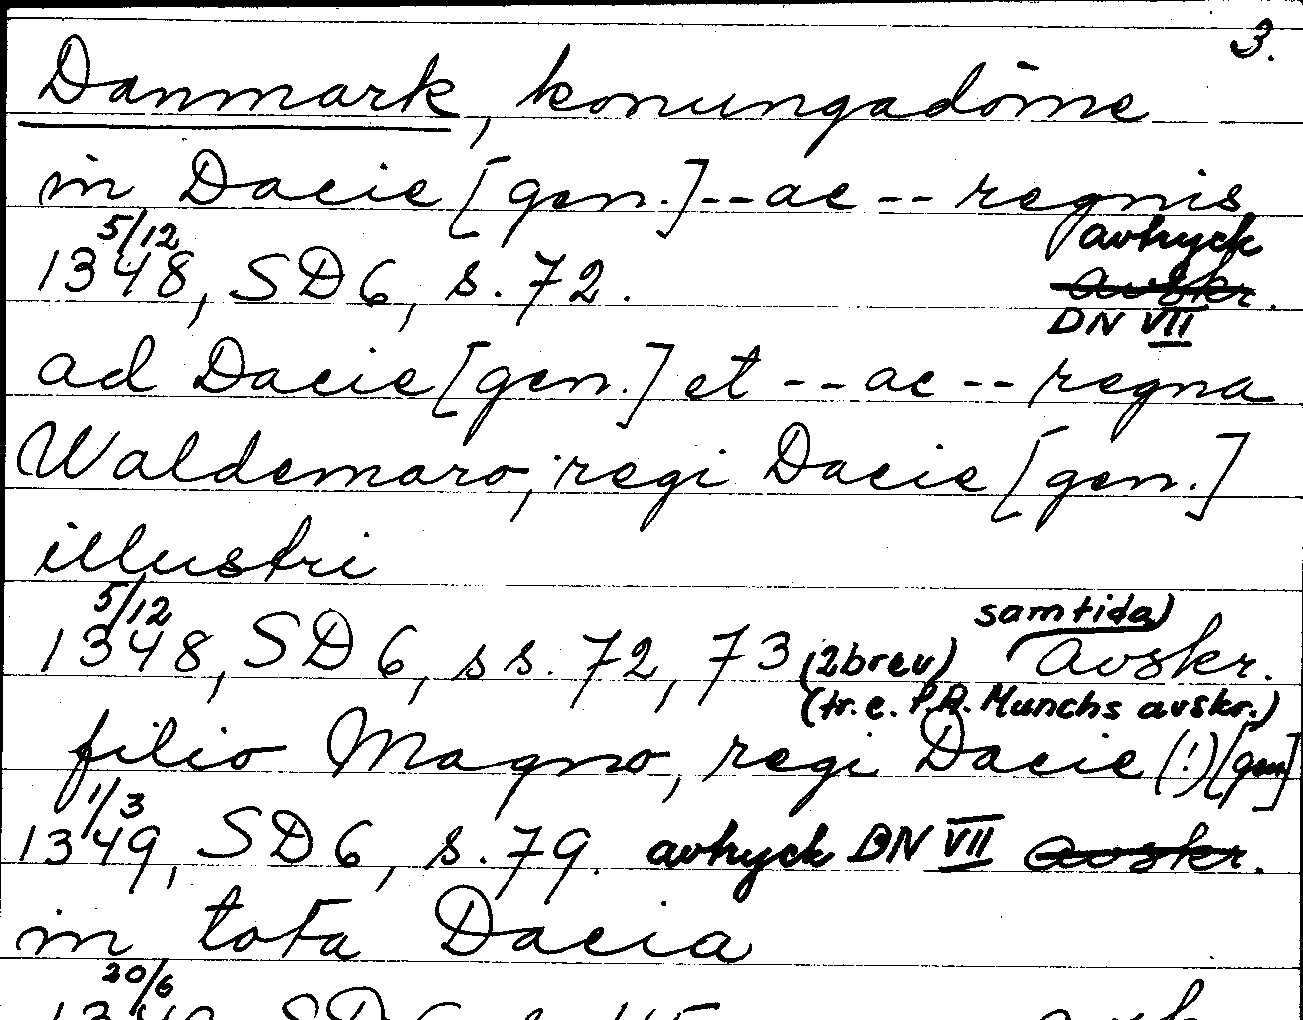 3.
Danmark, konungadöme
in Dacie [gen.]--ac -- regnis
5/12
1348, SD 6, s. 72. avtryck
avskr.
DN VII
ad Dacie [gen.] et --ac -- regna
Waldemaro, regi Dacie [gen.]
illustri
5/12 samtida)
1348, SD 6, ss. 72, 73 (2brev) avskr.
(tr. e. P.A. Munchs avskr.)
filio Magno, regi Dacie (!) [gen]
1/3
1349, SD 6, s. 79. avtryck DN VII avskr.
in tota Dacia
20/6